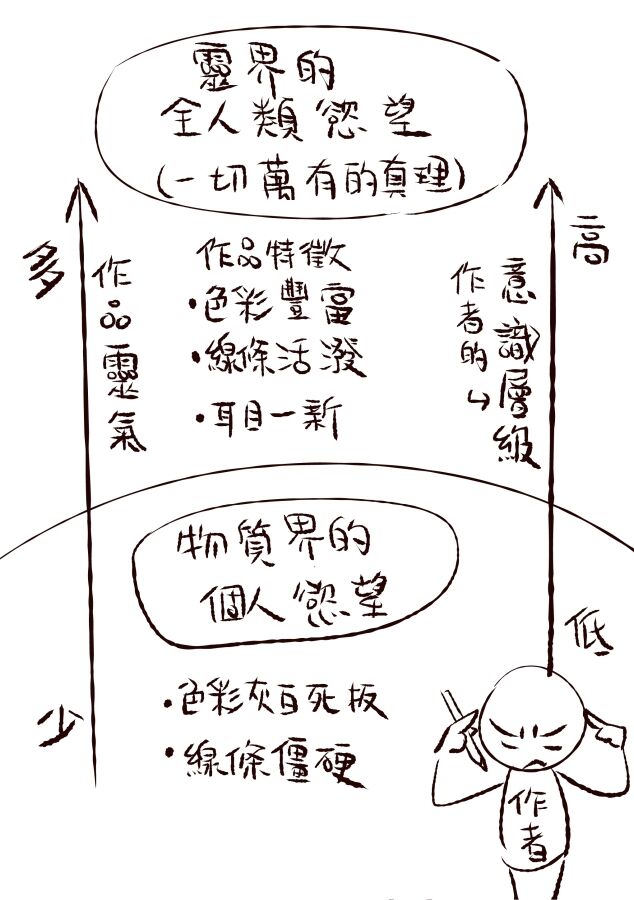 靈界的
全人類慾望
(一切萬有的真理)
多
作品靈氣
少
作品特徵
•色彩豐富
•線條活潑
•耳目一新
高
意識層級
作者的↳
低
物質界的
個人慾望
•色彩灰白死板
•線條僵硬
作者